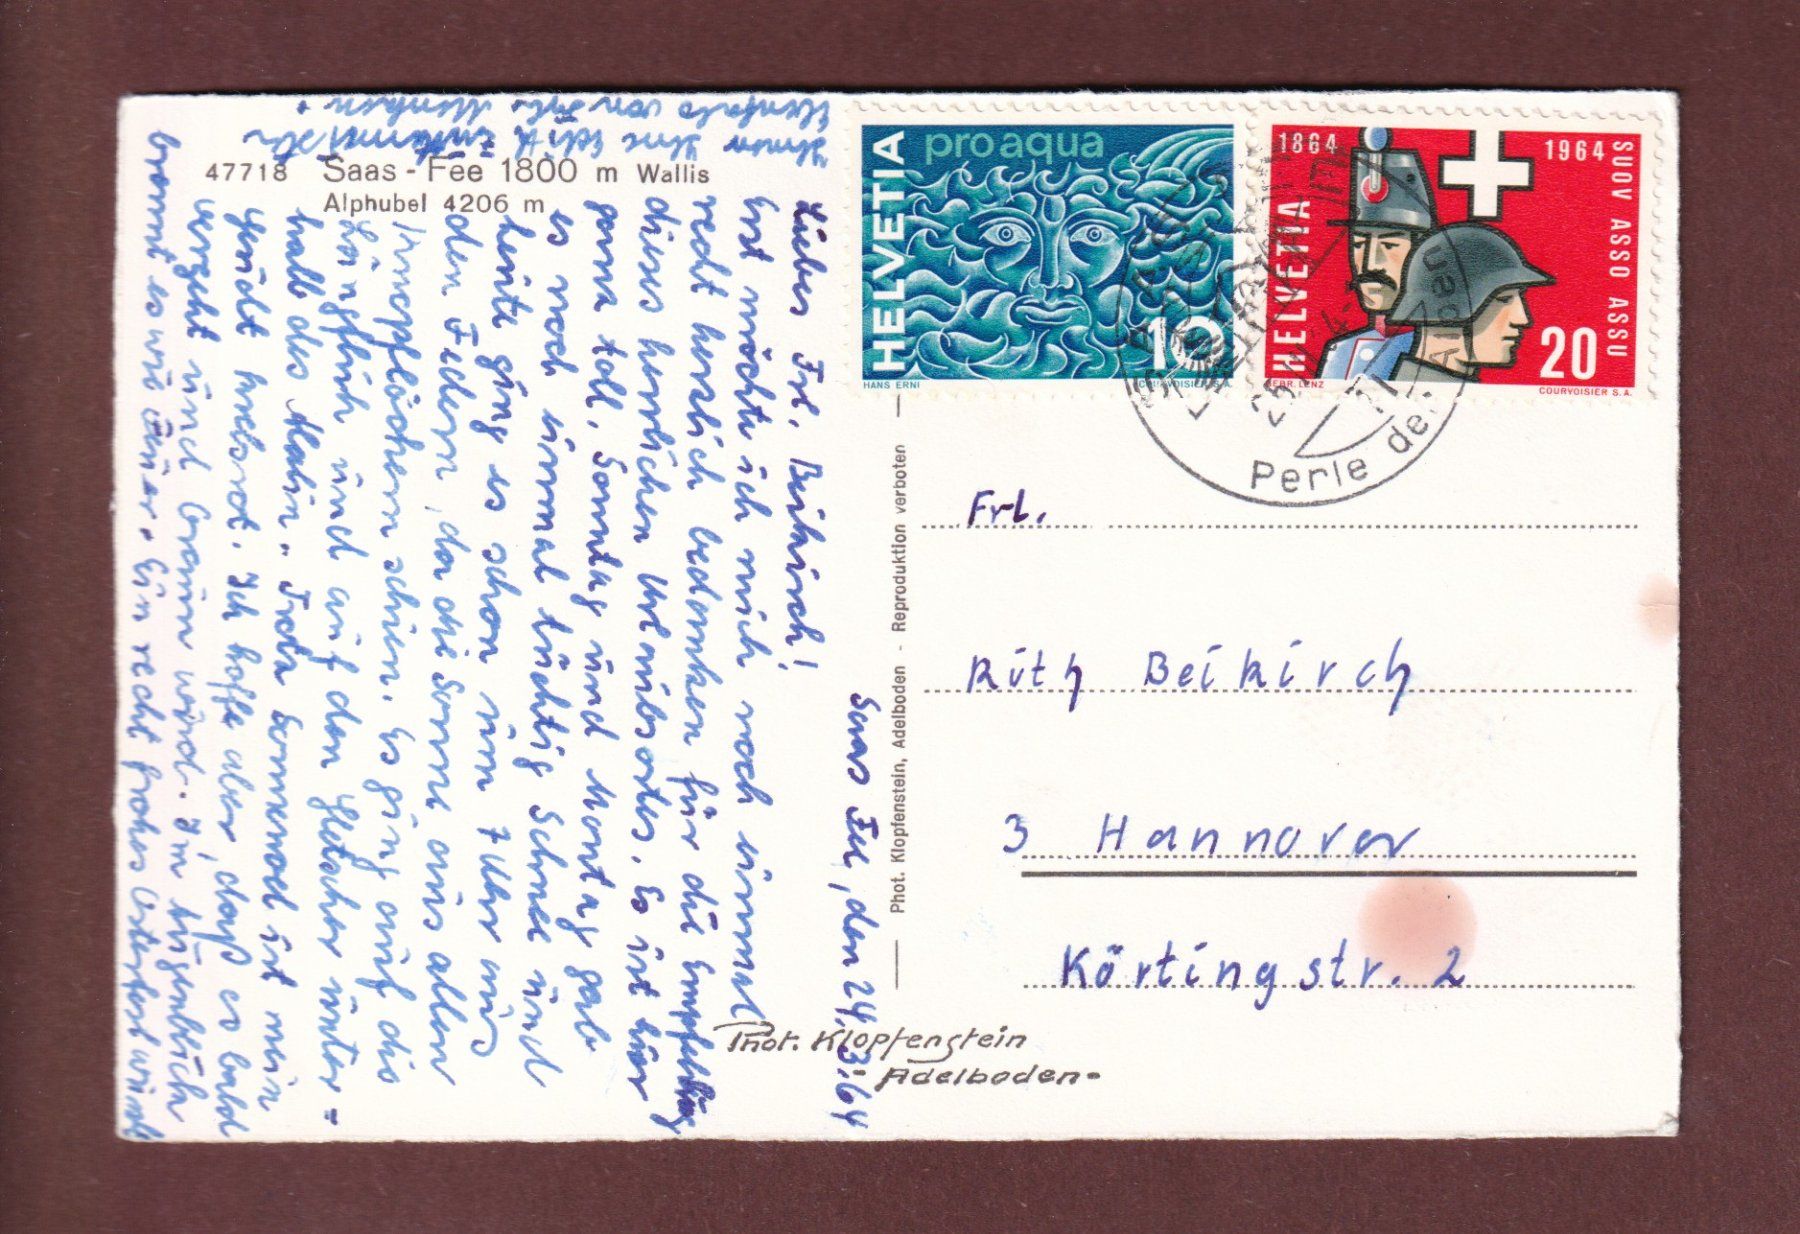 47718 Saas - Fee 1800 m Wallis
Alphubel 4206 m
Saas Fee, den 24.3.64
Liebes Frl. Beikirch!
Erst möchte ich mich noch einmal
recht herzlich bedanken für die Empfehlung
dieses herrlichen Urlaubsortes. Es ist hier
ganz toll. Sonntag und Montag gab
es noch einmal tüchtig Schnee und
heute ging es schon um 7 Uhr aus
den Federn, da die Sonne aus allen
Knopflöchern schien. Es ging auf die
Längfluh und auf den Gletscher unter-
halb des Allalin. Trotz Sonnenöl ist mein
Gesicht krebsrot. Ich hoffe aber, daß es bald
vergeht und braun wird. Im Augenblick
brennt es wie Feuer. Ein recht frohes Osterfest wünscht
Ihnen Ihre
Ebenfalls von Frl.
HELVETIA
pro aqua
10
HANS ERNI
COURVOISIER S.A.
1864
1964
HELVETIA
SUOV ASSO ASSU
20
GEBR. LENZ
COURVOISIER S.A.
Perle der Alpen
Phot. Klopfenstein, Adelboden - Reproduktion verboten
Frl.
Ruth Beikirch
3 Hannover
Körtingstr. 2
Phot. Klopfenstein
Adelboden-